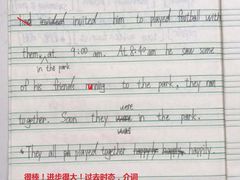 invited him to played football with
them, at 9:00 am. At 8:40 am he saw some
in the park
of his friends running to the park, they ran
together. Soon they were in the park.
were
* They all played together happily.
很棒！进步很大！过去时态，介词